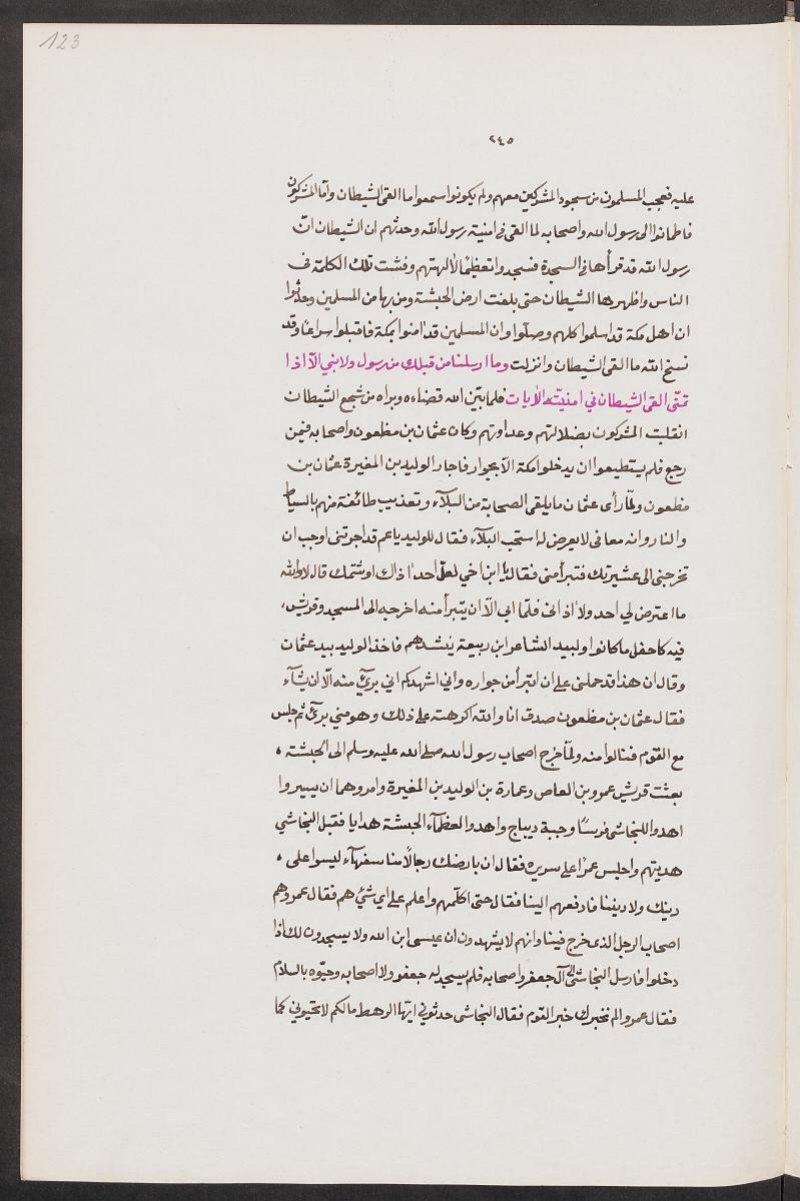 123
٢٤٥
عليه فعجب المسلمون من سجود المشركين معهم ولم يكونوا سمعوا ما القى الشيطان واما المشركون
فاطمانوا الى رسول الله واصحابه لما القى في امنية رسول الله وحدثهم ان الشيطان انّ
رسول الله قد قرأها في السجدة فسجدوا تعظيمًا لآلهتهم وفشت تلك الكلمة في
الناس واظهرها الشيطان حتى بلغت ارض الحبشة ومن بها من المسلمين وحدثوا
ان اهل مكة قد اسلموا كلهم وصلّوا وان المسلمين قد امنوا بمكة فاقبلوا سراعًا وقد
نسخ الله ما القى الشيطان وانزلت وما ارسلنا من قبلك من رسول ولا نبي الآ اذا
تمنّى القى الشيطان في امنيته الآيات فلما بيّن الله قضاءه وبراه من شجع الشيطان
انقلبت المشركون بضلالتهم وعداوتهم وكان عثمان بن مظعون واصحابه فيمن
رجع فلم يستطيعوا ان يدخلوا مكة الآ بجوار فاجار الوليد بن المغيرة عثمان بن
مظعون ولمّا رأى عثمان ما يلقى الصحابة من البلآء وتعذيب طائفة منهم بالسياط
والنار وانه معافى لا يعرض له استحب البلآء فقال للوليد يا عم قد اجرتنى اوجب ان
تخرجنى الى عشيرتك فتبرأ منى فقال يا ابن اخي لعلّ احدًا اذاك او شتمك قال لا والله
ما اعترض لي احد ولا اذانى فلمّا ابى الآ ان يتبرأ منه اخرجه الى المسجد وقريش،
فيه كاحفل ما كانوا ولبيد الشاعر ابن ربيعة ينشدهم فاخذ الوليد بيد عثمان
وقال ان هذا قد حملنى على ان اتبرأ من جواره واني اشهدكم اني بريئ منه الّا ان يشآء
فقال عثمان بن مظعون صدق انا والله اكرهته على ذلك وهو مني بريئ ثم جلس
مع القوم فنالوا منه ولمّا خرج اصحاب رسول الله صلى الله عليه وسلم الى الحبشة ،
بعثت قريش عمرو بن العاص وعمارة بن الوليد بن المغيرة وامروهما ان يسيروا
اهدوا للنجاشى فرسًا وجبة ديباج واهدوا لعظمآء الحبشة هدايا فقبل النجاشي
هديتهم واجلس عمرًا على سريره فقال ان بارضك رجالًا منا سفهآء ليسوا على ،
دينك ولا ديننا فادفعهم الينا فقال حتى اكلّمهم واعلم على اي شئ هم فقال عمرو هم
اصحاب الرجل الذى خرج فينا وانهم لا يشهدون ان عيسى ابن الله ولا يسجدون لك اذا
دخلوا فارسل النجاشى الى جعفر واصحابه فلم يسجد له جعفر ولا اصحابه وحيّوه بالسلام
فقال عمرو الم نخبرك خبر القوم فقال النجاشى حدثوني ايها الرهط مالكم لا تحيوني كما